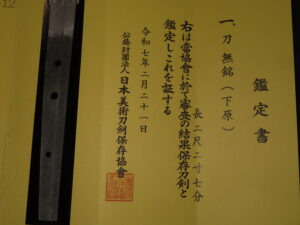 鑑定書
一、刀 無銘(下原)
長二尺二寸七分
右は當協會に於て審査の結果保存刀剣と
鑑定しこれを証する
令和七年二月二十一日
公益財団法人日本美術刀剣保存協會